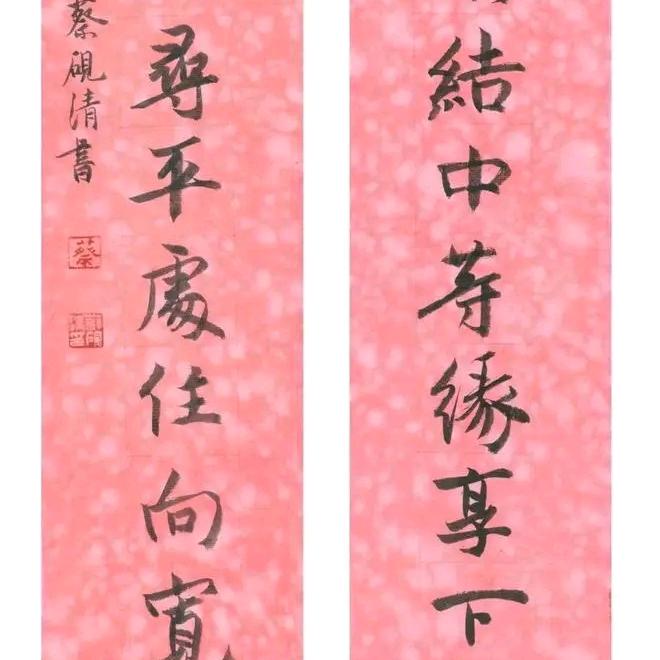 結中等緣享下
尋平處住向寬
蔡硯清書
蔡